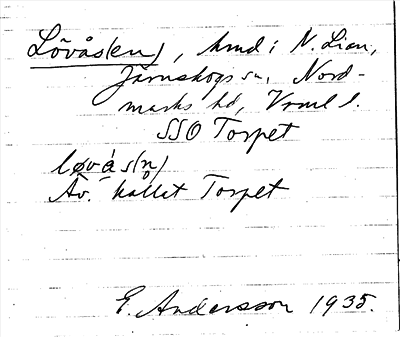 Lövås(en), hmd i N. Lian,
Järnskogs sn, Nord-
marks hd, Vrml l.
SSO Torpet
løvås(n̥)
Äv. kallat Torpet
E. Andersson 1935.